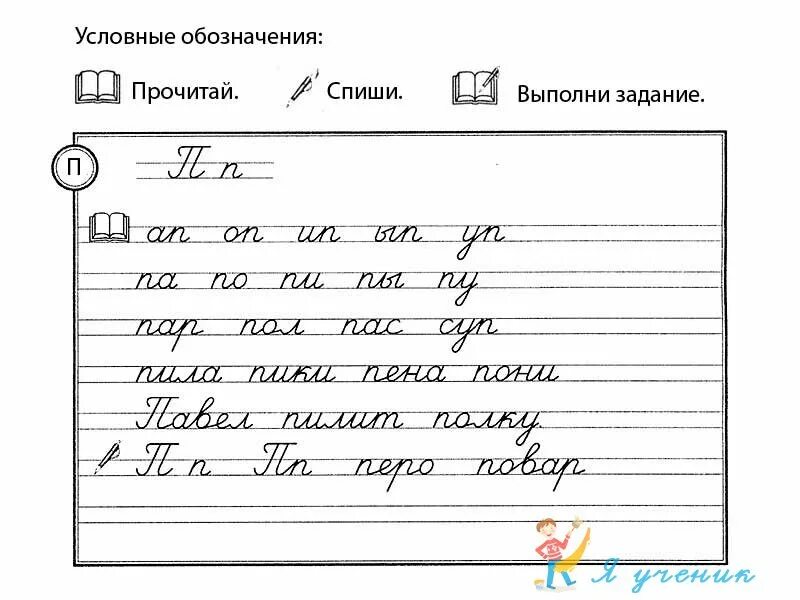 Условные обозначения:
Прочитай. Спиши. Выполни задание.
П
П п
ап оп ип ып уп
па по пи пы пу
пар пол пас суп
пила пики пена пони
Павел пилит полку.
П п Пп перо повар
Я ученик